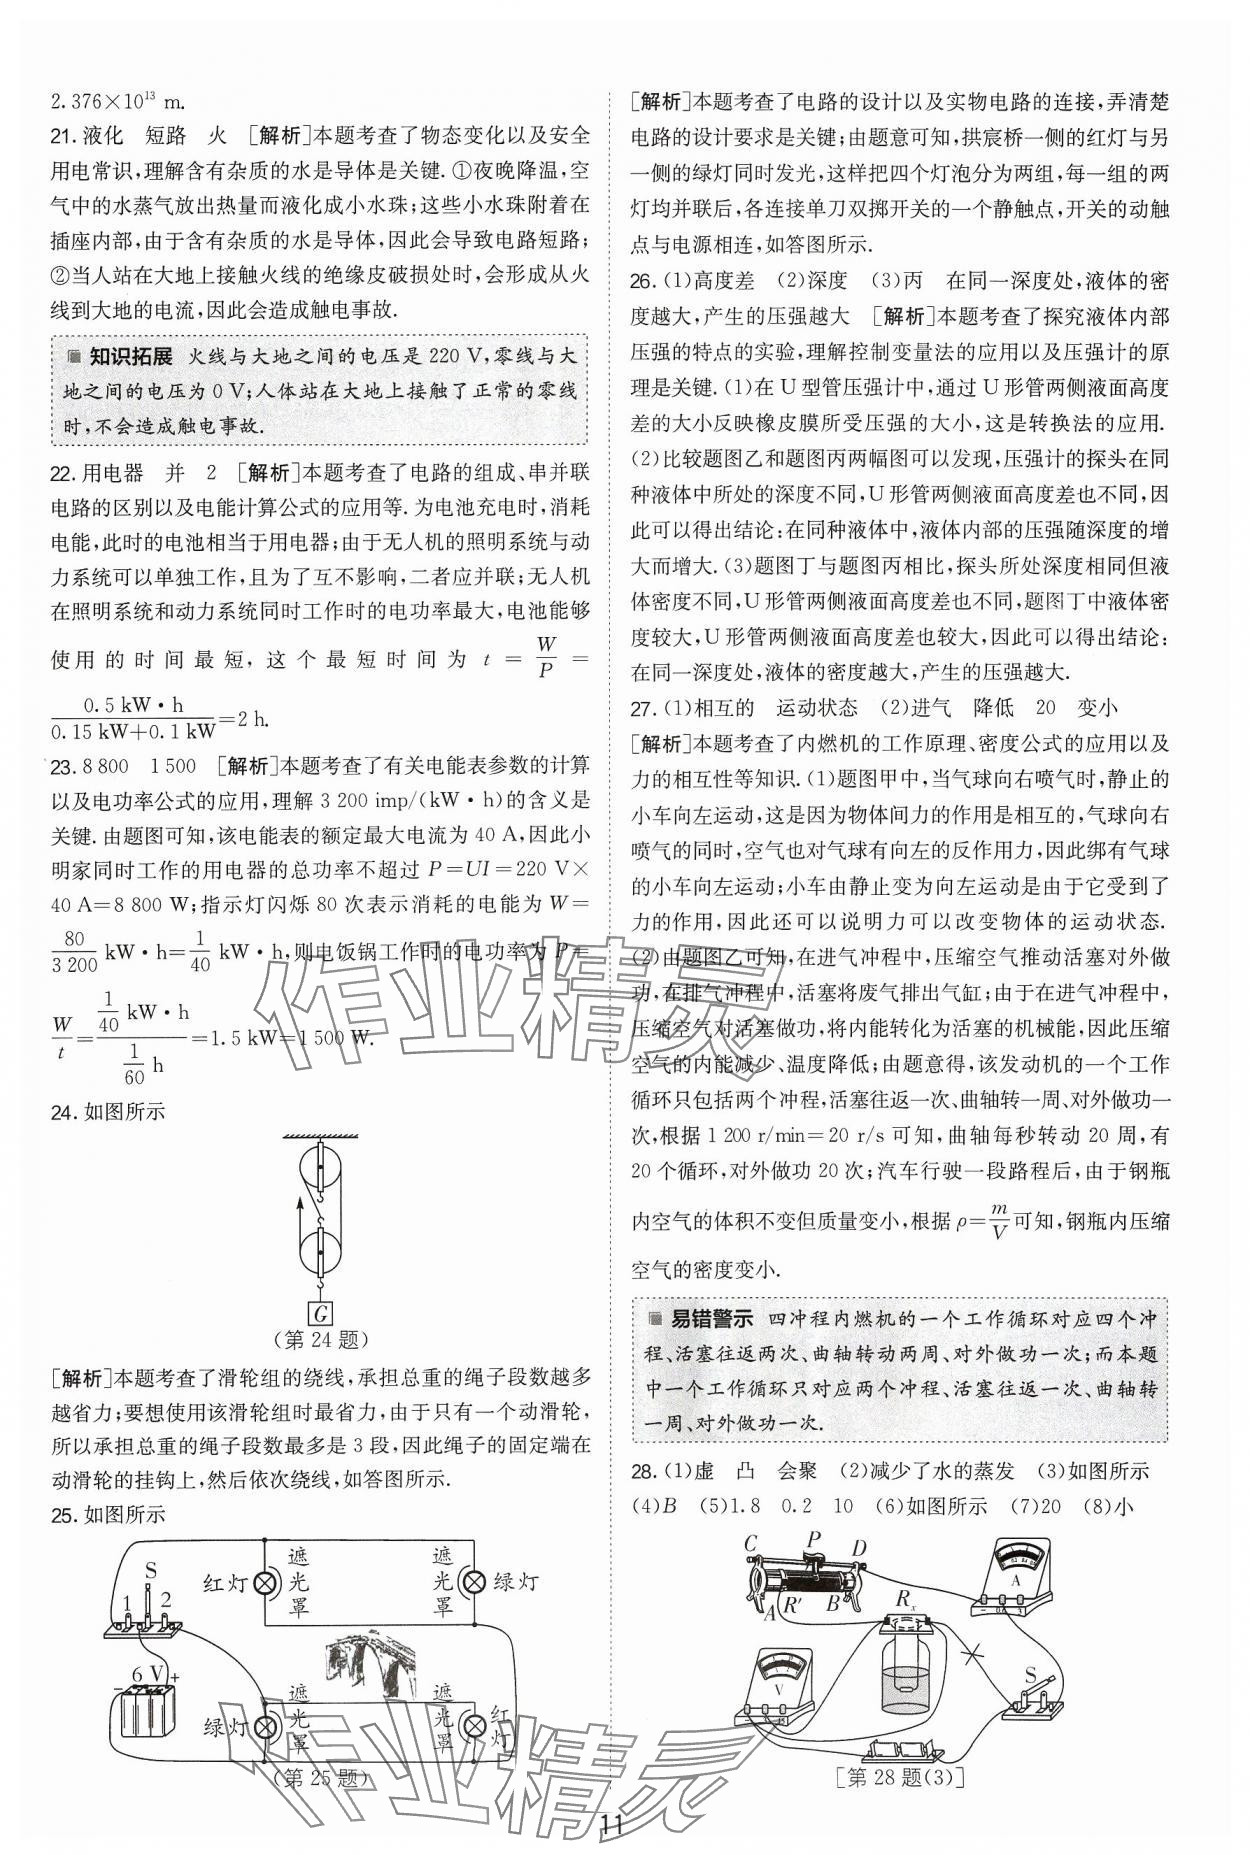 2.376×10¹³ m.
21. 液化　短路　火　[解析]本题考查了物态变化以及安全
用电常识,理解含有杂质的水是导体是关键. ①夜晚降温,空
气中的水蒸气放出热量而液化成小水珠;这些小水珠附着在
插座内部,由于含有杂质的水是导体,因此会导致电路短路;
②当人站在大地上接触火线的绝缘皮破损处时,会形成从火
线到大地的电流,因此会造成触电事故.
知识拓展　火线与大地之间的电压是 220 V,零线与大
地之间的电压为 0 V;人体站在大地上接触了正常的零线
时,不会造成触电事故.
22. 用电器　并　2　[解析]本题考查了电路的组成、串并联
电路的区别以及电能计算公式的应用等. 为电池充电时,消耗
电能,此时的电池相当于用电器;由于无人机的照明系统与动
力系统可以单独工作,且为了互不影响,二者应并联;无人机
在照明系统和动力系统同时工作时的电功率最大,电池能够
使用的时间最短,这个最短时间为 t = W/P =
0.5 kW·h/(0.15 kW+0.1 kW)=2 h.
23. 8 800　1 500　[解析]本题考查了有关电能表参数的计算
以及电功率公式的应用,理解 3 200 imp/(kW·h)的含义是
关键. 由题图可知,该电能表的额定最大电流为 40 A,因此小
明家同时工作的用电器的总功率不超过 P=UI=220 V×
40 A=8 800 W;指示灯闪烁 80 次表示消耗的电能为 W=
80/3 200 kW·h=1/40 kW·h,则电饭锅工作时的电功率为 P=
W/t=(1/40 kW·h)/(1/60 h)=1.5 kW=1 500 W.
24. 如图所示
G
(第 24 题)
[解析]本题考查了滑轮组的绕线,承担总重的绳子段数越多
越省力;要想使用该滑轮组时最省力,由于只有一个动滑轮,
所以承担总重的绳子段数最多是 3 段,因此绳子的固定端在
动滑轮的挂钩上,然后依次绕线,如答图所示.
25. 如图所示
S
1 2
6 V
- +
红灯 遮光罩 遮光罩 绿灯
绿灯 遮光罩 遮光罩 红灯
(第 25 题)
[解析]本题考查了电路的设计以及实物电路的连接,弄清楚
电路的设计要求是关键;由题意可知,拱宸桥一侧的红灯与另
一侧的绿灯同时发光,这样把四个灯泡分为两组,每一组的两
灯均并联后,各连接单刀双掷开关的一个静触点,开关的动触
点与电源相连,如答图所示.
26. (1)高度差　(2)深度　(3)丙　在同一深度处,液体的密
度越大,产生的压强越大　[解析]本题考查了探究液体内部
压强的特点的实验,理解控制变量法的应用以及压强计的原
理是关键. (1)在 U 型管压强计中,通过 U 形管两侧液面高度
差的大小反映橡皮膜所受压强的大小,这是转换法的应用.
(2)比较题图乙和题图丙两幅图可以发现,压强计的探头在同
种液体中所处的深度不同,U 形管两侧液面高度差也不同,因
此可以得出结论:在同种液体中,液体内部的压强随深度的增
大而增大. (3)题图丁与题图丙相比,探头所处深度相同但液
体密度不同,U 形管两侧液面高度差也不同,题图丁中液体密
度较大,U 形管两侧液面高度差也较大,因此可以得出结论:
在同一深度处,液体的密度越大,产生的压强越大.
27. (1)相互的　运动状态　(2)进气　降低　20　变小
[解析]本题考查了内燃机的工作原理、密度公式的应用以及
力的相互性等知识. (1)题图甲中,当气球向右喷气时,静止的
小车向左运动,这是因为物体间力的作用是相互的,气球向右
喷气的同时,空气也对气球有向左的反作用力,因此绑有气球
的小车向左运动;小车由静止变为向左运动是由于它受到了
力的作用,因此还可以说明力可以改变物体的运动状态.
(2)由题图乙可知,在进气冲程中,压缩空气推动活塞对外做
功,在排气冲程中,活塞将废气排出气缸;由于在进气冲程中,
压缩空气对活塞做功,将内能转化为活塞的机械能,因此压缩
空气的内能减少、温度降低;由题意得,该发动机的一个工作
循环只包括两个冲程,活塞往返一次、曲轴转一周、对外做功一
次,根据 1 200 r/min=20 r/s 可知,曲轴每秒转动 20 周,有
20 个循环,对外做功 20 次;汽车行驶一段路程后,由于钢瓶
内空气的体积不变但质量变小,根据 ρ=m/V 可知,钢瓶内压缩
空气的密度变小.
易错警示　四冲程内燃机的一个工作循环对应四个冲
程、活塞往返两次、曲轴转动两周、对外做功一次;而本题
中一个工作循环只对应两个冲程、活塞往返一次、曲轴转
一周、对外做功一次.
28. (1)虚　凸　会聚　(2)减少了水的蒸发　(3)如图所示
(4)B　(5)1.8　0.2　10　(6)如图所示　(7)20　(8)小
C P D
A R′ B Rₓ
A
V
S
[第 28 题(3)]
作业精灵
作业精灵
11